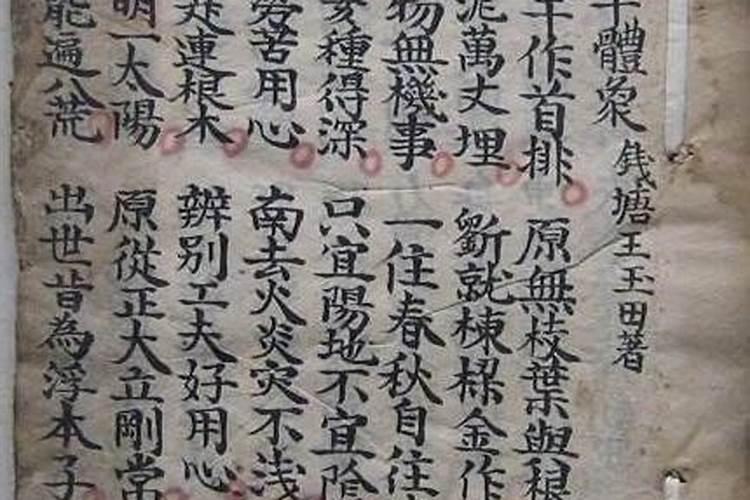 干體象 錢塘王玉田著
干作首排 原無枝葉與根
泥萬丈埋 斵就棟樑金作
物無機事 一住春秋自住
種得深 只宜陽地不宜陰
苦用心 南去火炎灾不浅
連根木 辨别工夫好用心
明一太陽 原從正大立剛常
能遍八荒 出世皆為浮本子